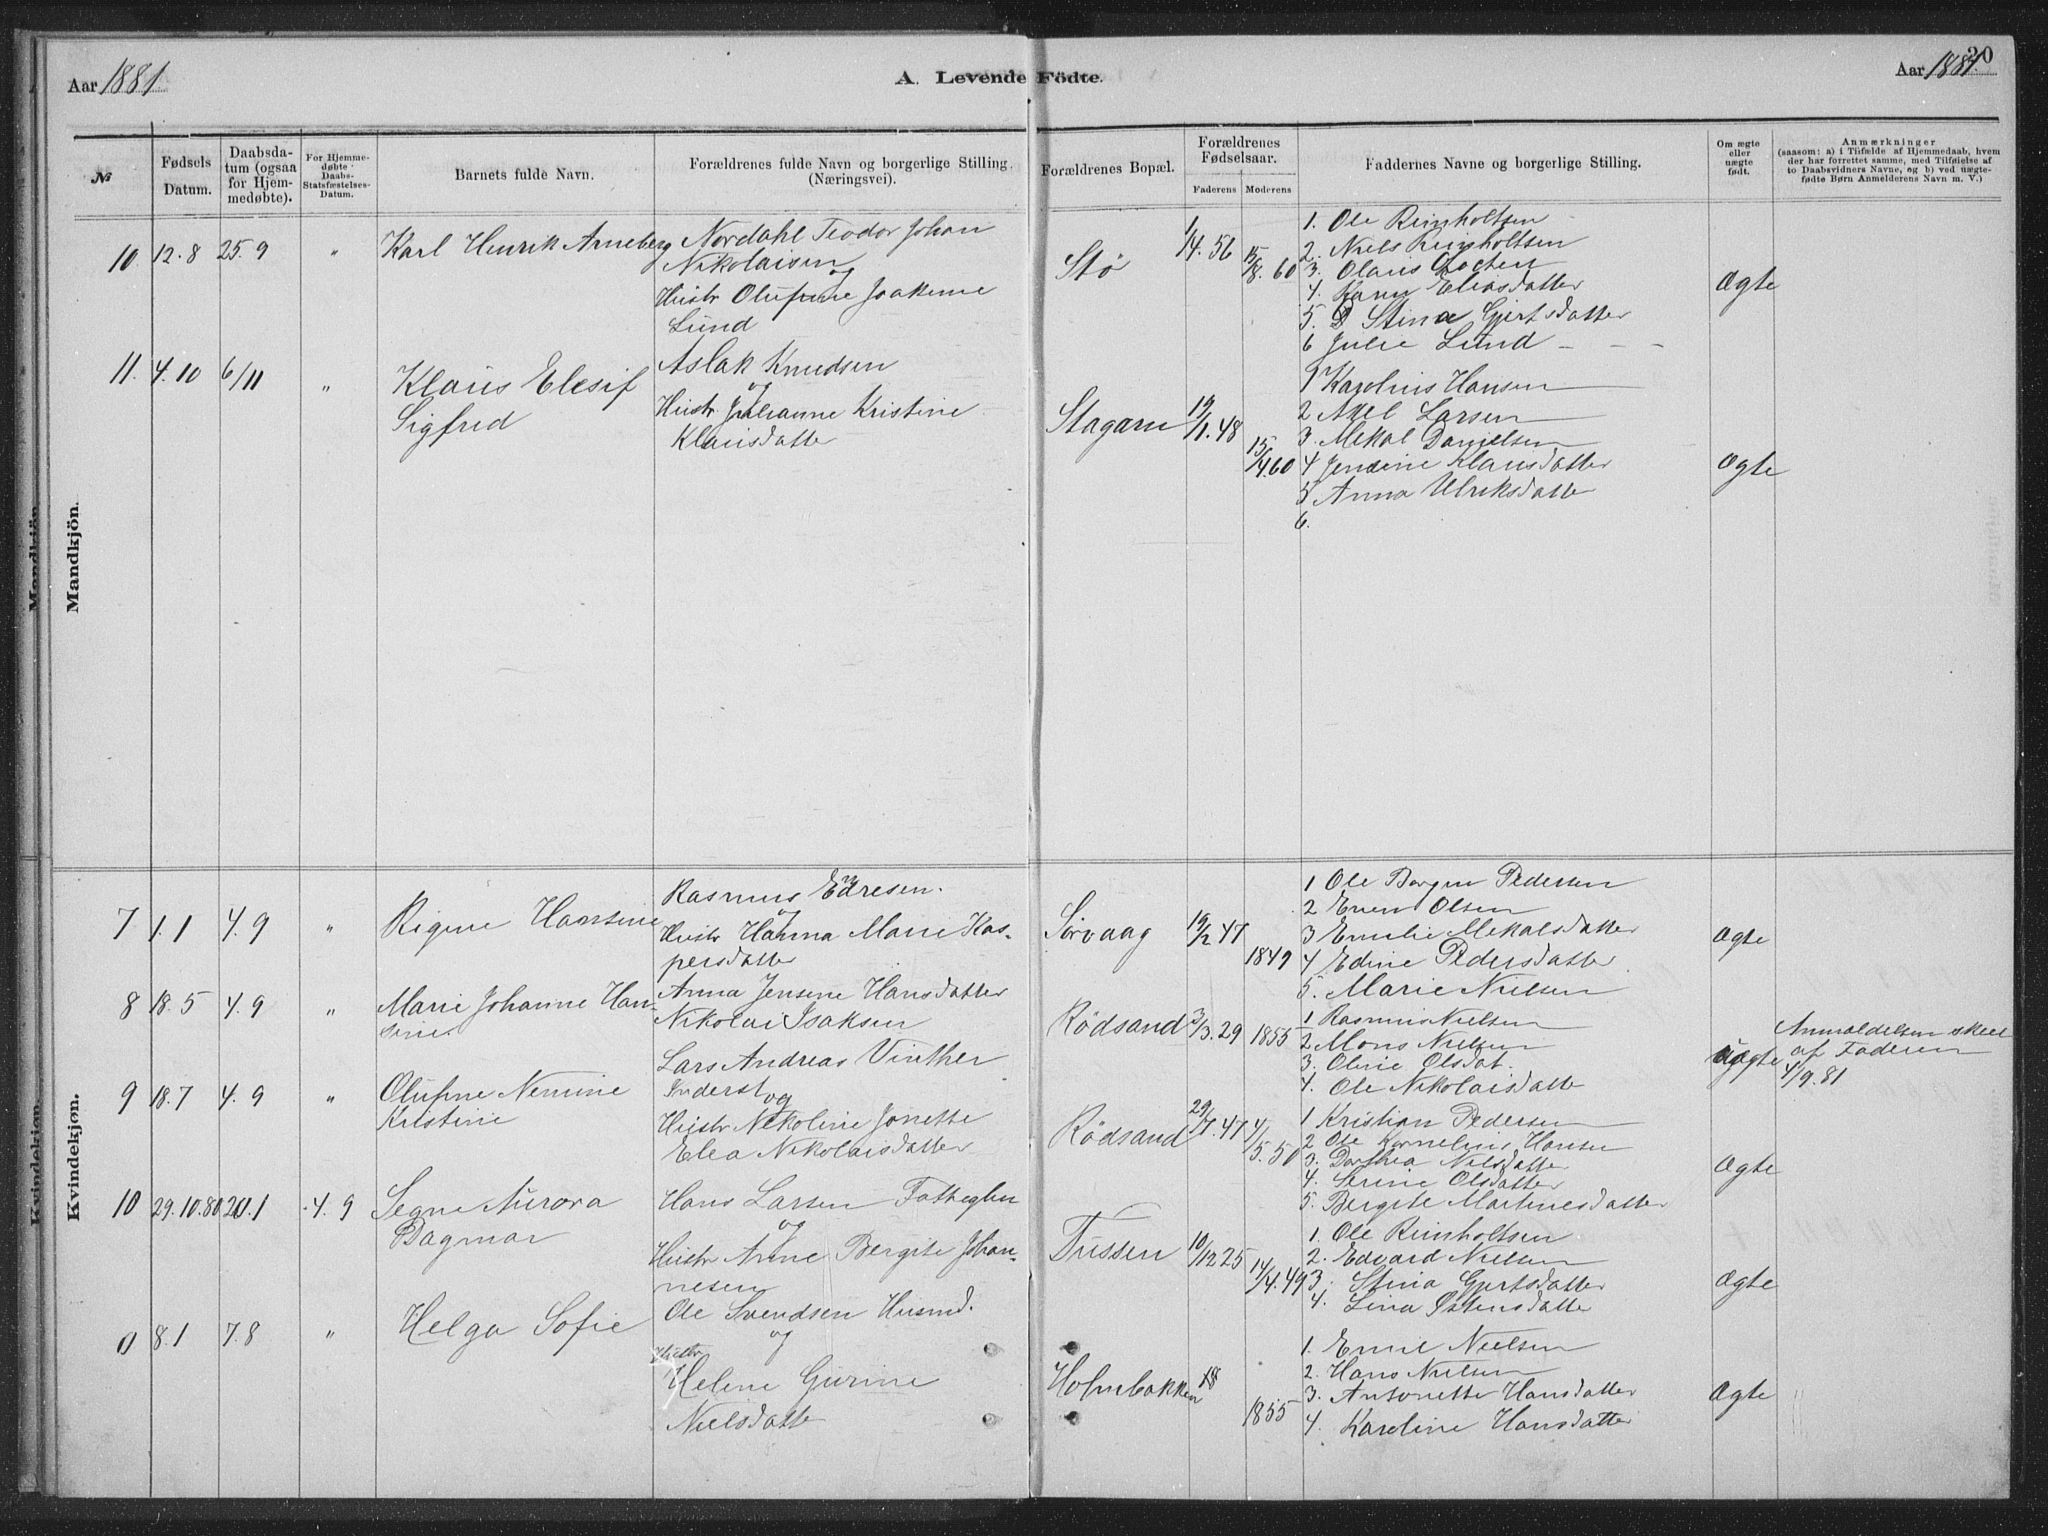 Aar 1881
A. Levende Födte.
Aar 1881.
20
№
Fødsels Datum.
Daabsdatum (ogsaa for Hjemmedøbte).
For Hjemmedøbte Daabs-Statsfæstelses-Datum.
Barnets fulde Navn.
Forældrenes fulde Navn og borgerlige Stilling.
(Næringsvei).
Forældrenes Bopæl.
Forældrenes Fødselsaar.
Faderens
Moderens
Faddernes Navne og borgerlige Stilling.
Om ægte eller uægte født.
Anmærkninger
(saasom: a) i Tilfælde af Hjemmedaab, hvem
der har forrettet samme, med Tilføielse af
to Daabsvidners Navne, og b) ved uægte-
fødte Børn Anmelderens Navn m. V.)
Mandkjön.
10. 12.8 25.9 "
Karl Henrik Arneberg
Nordahl Teodor Johan
Nikolaisen
og
Hustr Olufine Joakime
Lund
Stø
1/14.56
15/8.60
1. Ole Reinholtsen
2. Niels Reinholtsen
3. Olaus
4. Eleasdatter
5. Stina Gjertsdatter
6 Julie Lund - - -
Ægte
11. 4.10 6/11 "
Klaus Elesif
Sigfred
Aslak Knudsen
og
Hustr Julianne Kristine
Klausdatter
19/1.48
15/4 60
1 Karolius Hansen
2 Axel Larsen
3. Mekal Danielsen
4 Jensine Klausdatter
5 Anna Ulriksdatte
6.
Ægte
Kvindekjøn.
7 1.1 4.9 "
Rigine Hansine
Rasmus Edresen.
n
og
Hustr Hanna Marie Kas-
persdatter
Sørvaag
19/2 47
1849
1 Ole Borgen Pedersen
2 Even Olsen
3 Emilie Mekalsdatter
4 Edine Pedersdatter
5. Marie Nielsen
Ægte
8 18.5 4.9 "
Marie Johanne Han-
sine
Anna Jensine Hansdatter
Nikolai Isaksen
Rödsand
3/3.29
1855
1 Rasmus Nielsen
2 Mons Nielsen
3. Oline Olsdat.
4. Ole Nikolaisdatte
uægte
Anmeldelsen skeet
af Faderen
4/9.81
9 18.7 4.9 "
Olufine Nemine
Kristine
Lars Andreas Vinther
Inderst
og
Hustr Nikoline Jonette
Elea Nikolaisdatter
Rödsand
29/7.47
4/5.50
1 Kristian Pedersen
2 Ole Kornelius Hansen
3. Dorthea Nilsdatter
4. Serine Olsdatter
5. Bergite Martinesdatter
Ægte
10 29.10.80 20.1 4.9
Segne Aurora
Dagmar
Hans Larsen Fatteglem
og
Hustr Anne Bergite Johan-
nesen
Tussen
10/12 25
14/4.49
1. Ole Reinholtsen
2. Edvard Nielsen
3. Stina Gjertsdatter
4. Lina Østensdatter
Ægte
0 8.1 7.8 "
Helga Sofie
Ole Svendsen Husmd.
og
Hustr
Helene Gurine
Nielsdatte
Holmbakken
18
1855
1. Emil Nielsen
2. Hans Nielsen
3. Antonette Hansdatter
4. Karoline Hansdatter
Ægte